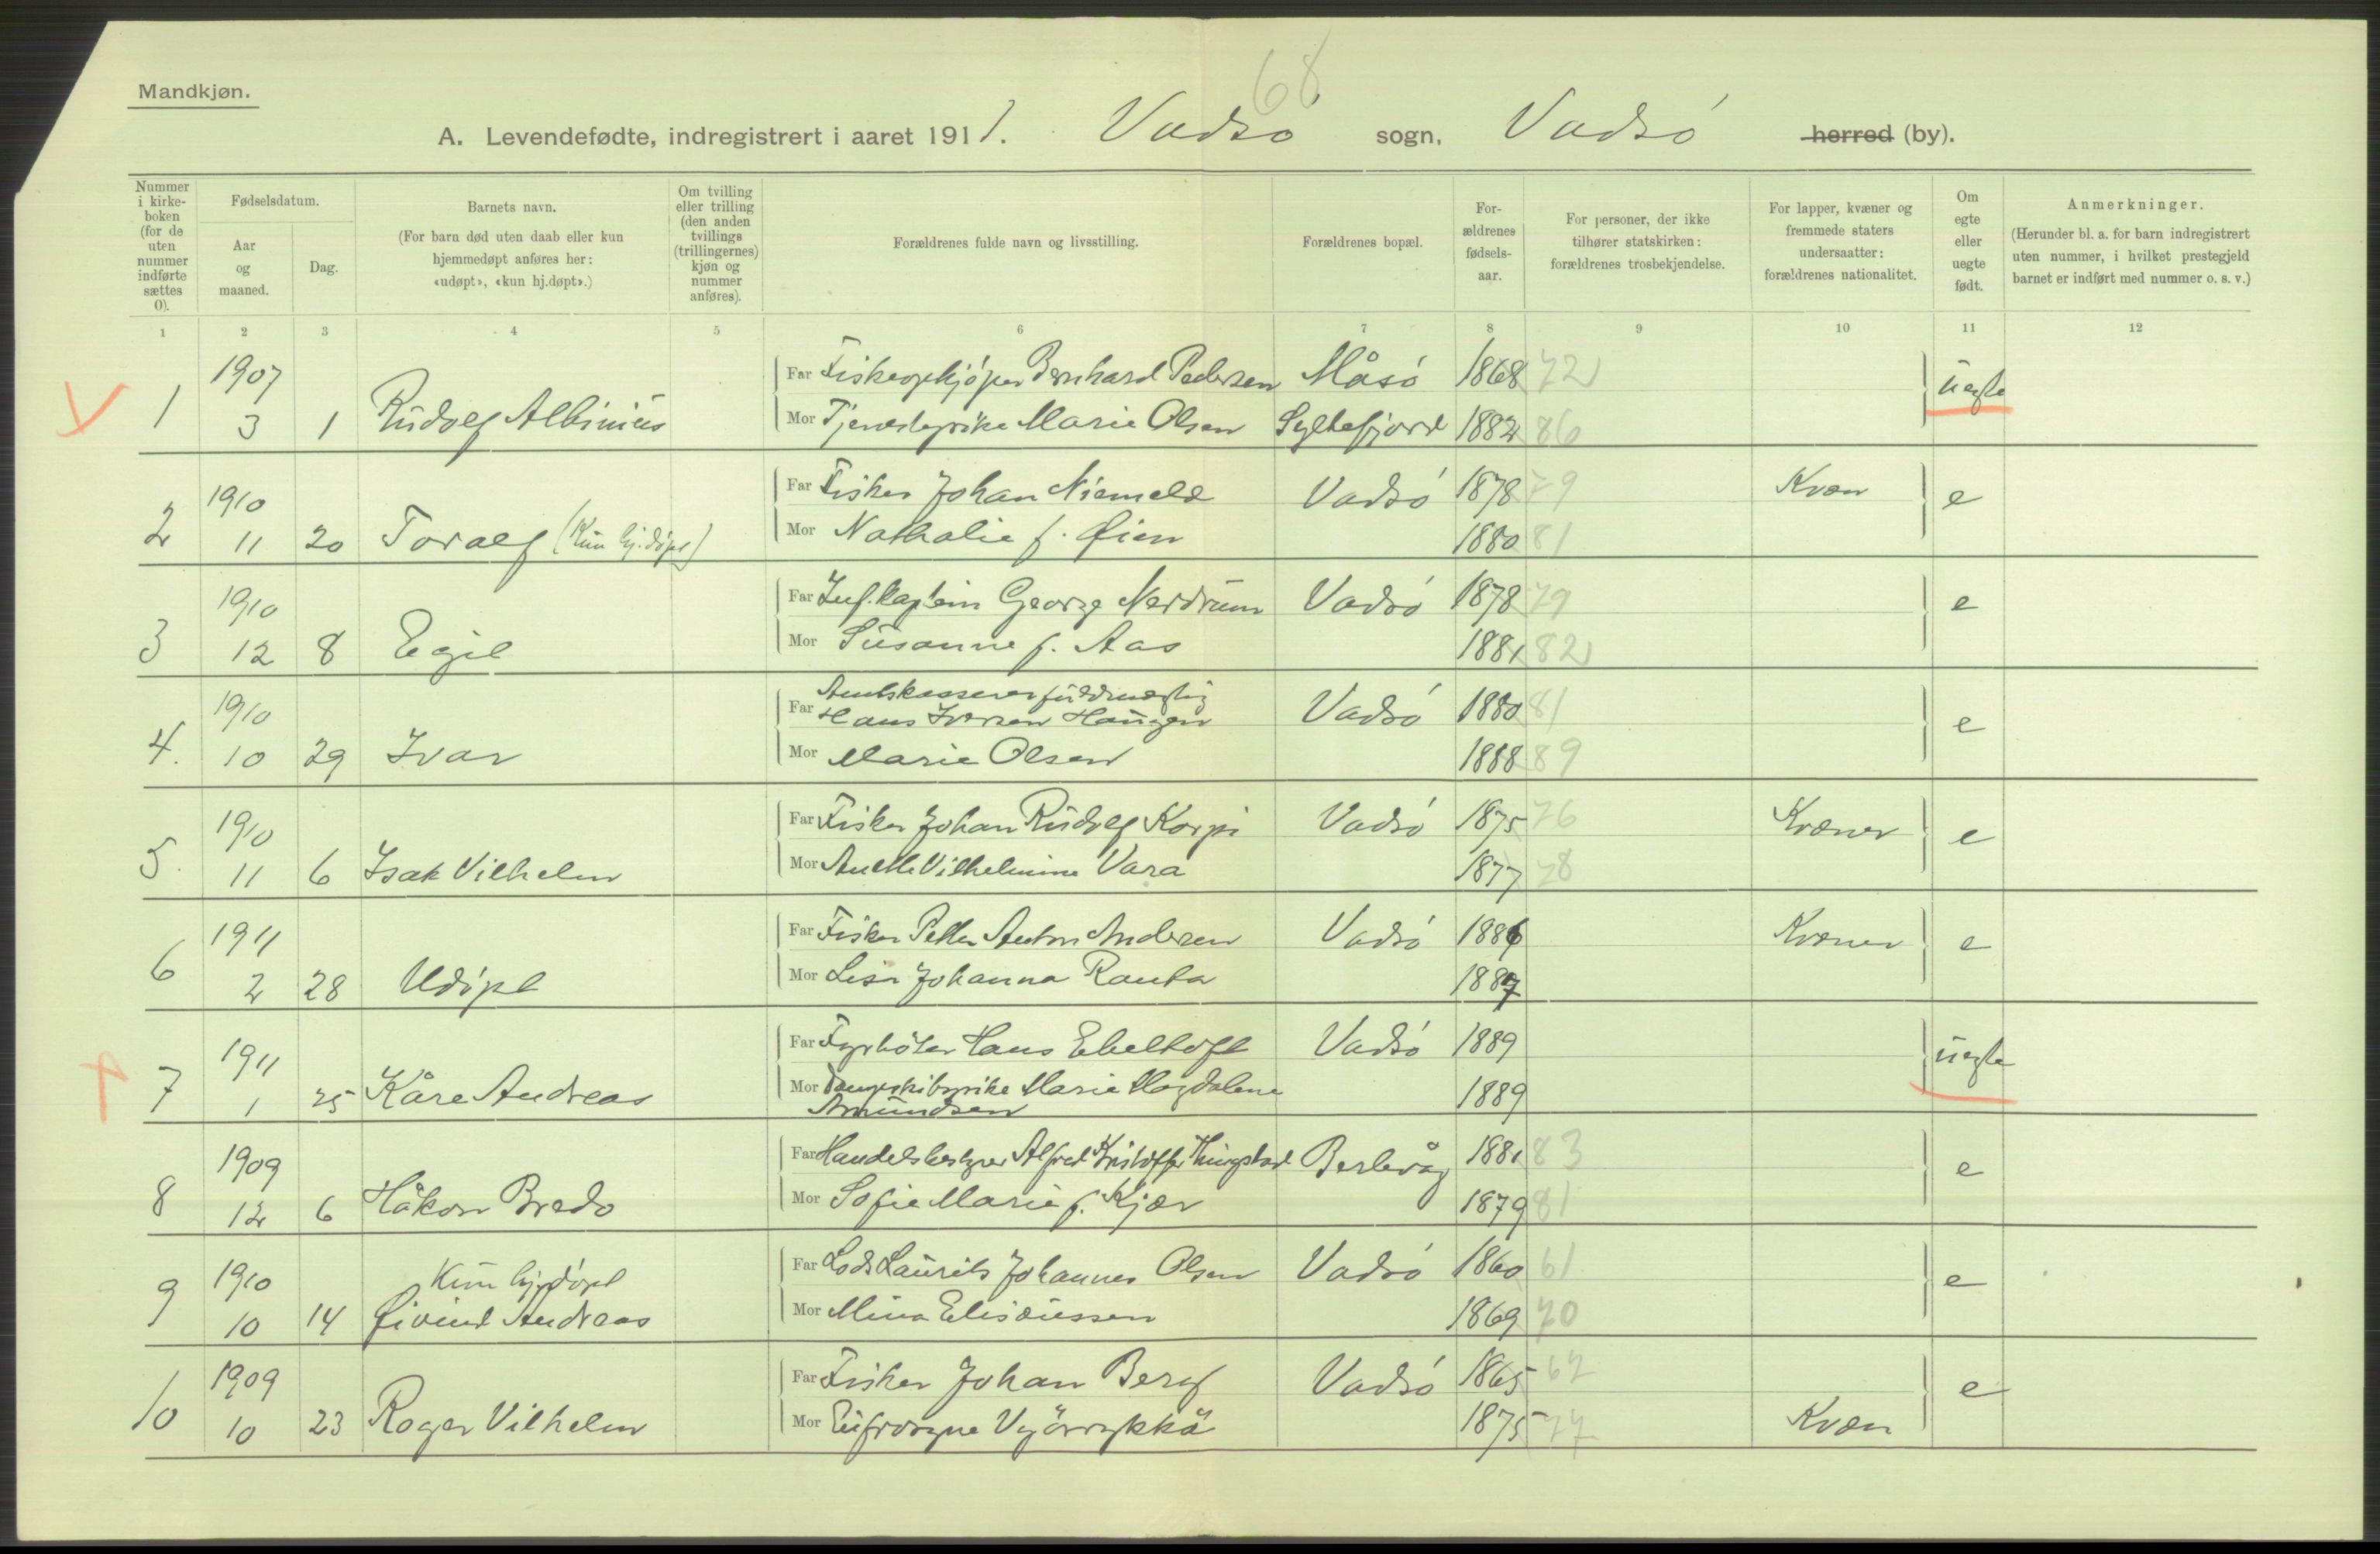 68
Mandkjøn.
A. Levendefødte, indregistrert i aaret 1911. Vadsö sogn, Vadsö herred (by).
Nummer i kirkeboken (for de uten nummer indførte sættes 0).
Fødselsdatum.
Aar og maaned.
Dag.
Barnets navn.
(For barn død uten daab eller kun hjemmedøpt anføres her: «udøpt», «kun hj.døpt».)
Om tvilling eller trilling (den anden tvillings (trillingernes) kjøn og nummer anføres).
Forældrenes fulde navn og livsstilling.
Forældrenes bopæl.
Forældrenes fødselsaar.
For personer, der ikke tilhører statskirken: forældrenes trosbekjendelse.
For lapper, kvæner og fremmede staters undersaatter: forældrenes nationalitet.
Om egte eller uegte født.
Anmerkninger.
(Herunder bl. a. for barn indregistrert uten nummer, i hvilket prestegjeld barnet er indført med nummer o. s. v.)
1 2 3 4 5 6 7 8 9 10 11 12
1907 Far Fiskeopkjöper Bernhard Pedersen Måsö 1868 72 uegte
1 3 1 Rudolf Albinius Mor Tjenestepike Marie Olsen Syltefjord 1882 86
1910 Far Fisker Johan Niemela Vadsö 1878 79 Kvæn e
2 11 20 Toralf (Kun hj.döpt) Mor Nathalie f. Øien 1880 81
1910 Far Inf.kaptein George Nerdrum Vadsö 1878 79 e
3 12 8 Egil Mor Susanne f. Aas 1881 82
1910 Far Amtskassererfuldmægtig Hans Iversen Haugen Vadsö 1880 81 e
4. 10 29 Ivar Mor Marie Olsen 1888 89
1910 Far Fisker Johan Rudolf Korpi Vadsö 1875 76 Kvæner e
5. 11 6 Isak Vilhelm Mor Anette Vilhelmine Vara 1877 78
1911 Far Fisker Petter Anton Andersen Vadsö 1886 Kvæner e
6 2 28 Udöpt Mor Lisa Johanna Rauta 1887
1911 Far Fyrböter Hans Ebeltoft Vadsö 1889 uegte
7 1 25 Kåre Andreas Mor Dampskibspike Marie Magdalene Amundsen 1889
1909 Far Handelsbestyrer Alfred Kristoffer Thingstad Berlevåg 1881 83 e
8 12 6 Håkon Bredo Mor Sofie Marie f. Kjær 1879 81
1910 Kun hj.döpt Far Lods Laurits Johannes Olsen Vadsö 1860 61 e
9 10 14 Øivind Andreas Mor Mina Elisæussen 1869 70
1909 Far Fisker Johan Berg Vadsö 1865 67 e
10 10 23 Roger Vilhelm Mor Eufrosyne Vyörrykkä 1875 77 Kvæn